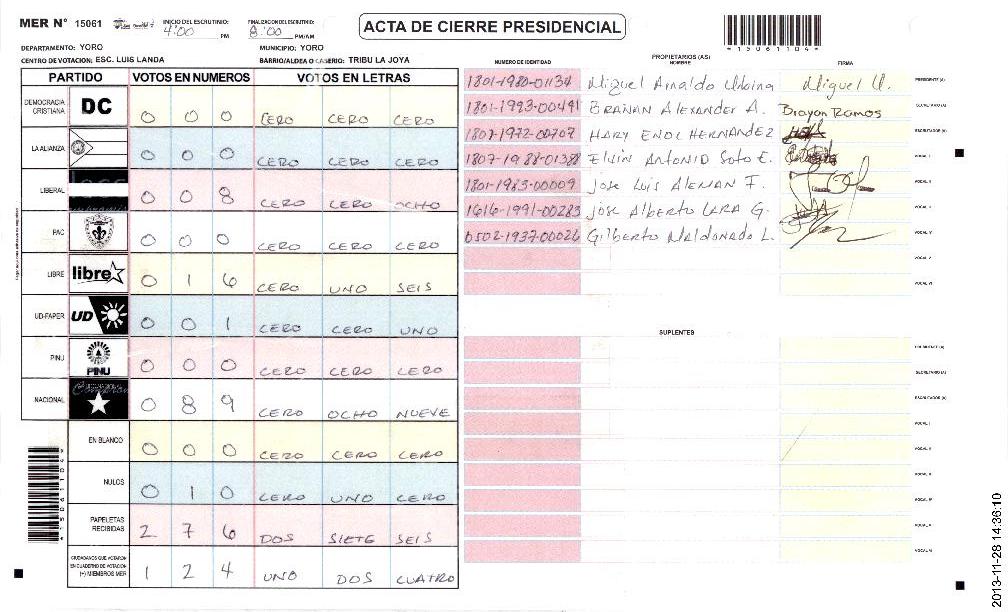 MER Nº 15061 INICIO DEL ESCRUTINIO: 4:00 PM FINALIZACION DEL ESCRUTINIO: 8:00 PM/AM
ACTA DE CIERRE PRESIDENCIAL
*15061104*
DEPARTAMENTO: YORO MUNICIPIO: YORO
CENTRO DE VOTACION: ESC. LUIS LANDA BARRIO/ALDEA O CASERIO: TRIBU LA JOYA
PARTIDO VOTOS EN NUMEROS VOTOS EN LETRAS
DEMOCRACIA CRISTIANA DC 0 0 0 CERO CERO CERO
LA ALIANZA 0 0 0 CERO CERO CERO
LIBERAL 0 0 8 CERO CERO OCHO
PAC 0 0 0 CERO CERO CERO
LIBRE libre 0 1 6 CERO UNO SEIS
UD-FAPER UD 0 0 1 CERO CERO UNO
PINU PINU 0 0 0 CERO CERO CERO
NACIONAL 0 8 9 CERO OCHO NUEVE
EN BLANCO 0 0 0 CERO CERO CERO
NULOS 0 1 0 CERO UNO CERO
PAPELETAS RECIBIDAS 2 7 6 DOS SIETE SEIS
CIUDADANOS QUE VOTARON EN CUADERNO DE VOTACION (+) MIEMBROS MER 1 2 4 UNO DOS CUATRO
PROPIETARIOS (AS)
NUMERO DE IDENTIDAD NOMBRE FIRMA
1801-1980-01134 Miguel Arnaldo Urbina Miguel U. PRESIDENTE (A)
1801-1993-00491 BRAÑAN ALEXANDER A. Brayan Ramos SECRETARIO (A)
1807-1972-00707 HARY ENOL HERNANDEZ ESCRUTADOR (A)
1807-1988-01388 Elvin ANTONIO Soto E. VOCAL I
1801-1983-00009 Jose Luis ALEMAN F. VOCAL II
1616-1991-00283 JOSE Alberto LARA G. VOCAL III
0502-1937-00026 Gilberto Maldonado L. VOCAL IV
VOCAL V
VOCAL VI
SUPLENTES
PRESIDENTE (A)
SECRETARIO (A)
ESCRUTADOR (A)
VOCAL I
VOCAL II
VOCAL III
VOCAL IV
VOCAL V
VOCAL VI
2013-11-28 14:36:10